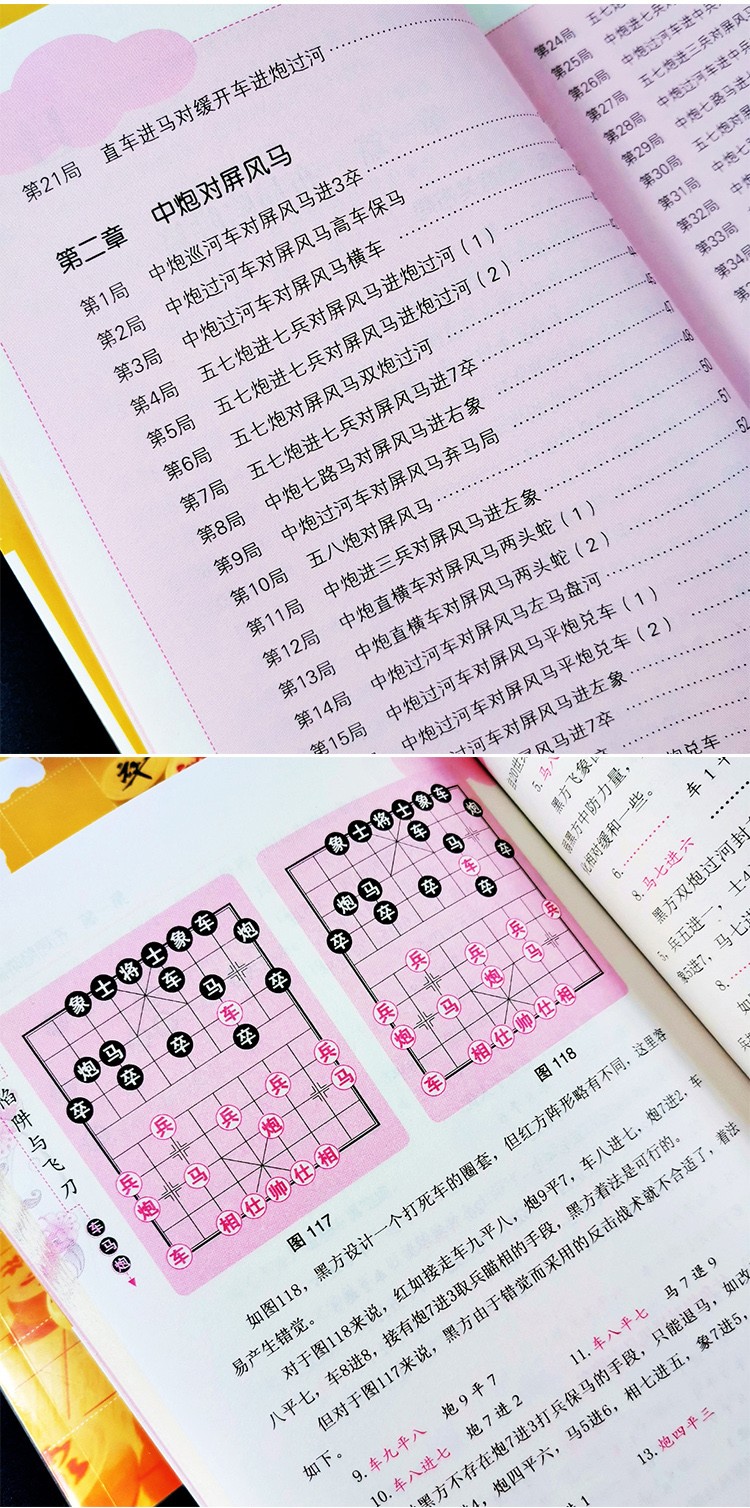 第21局 直车进马对缓开车进炮过河
第二章 中炮对屏风马
第1局 中炮巡河车对屏风马进3卒
第2局 中炮过河车对屏风马高车保马
第3局 中炮过河车对屏风马横车
第4局 五七炮进七兵对屏风马进炮过河（1）
第5局 五七炮进七兵对屏风马进炮过河（2）
第6局 五七炮对屏风马双炮过河
第7局 五七炮进七兵对屏风马进7卒
第8局 中炮七路马对屏风马进右象
第9局 中炮过河车对屏风马弃马局
第10局 五八炮对屏风马
第11局 中炮进三兵对屏风马进左象
第12局 中炮直横车对屏风马两头蛇（1）
第13局 中炮直横车对屏风马两头蛇（2）
第14局 中炮过河车对屏风马左马盘河
第15局 中炮过河车对屏风马平炮兑车（1）
中炮过河车对屏风马平炮兑车（2）
47
48
50
51
52
第24局
第25局
第26局
第27局
第28局
第29局
第30局
第31局
第32局
第33局
第34局
陷阱与飞刀
车马炮
象 士 将 士 象 车
炮
车
马
车
炮 马
卒 卒 卒 卒 卒
兵 兵 兵 兵 兵
马
炮
马
炮
车 相 仕 帅 仕 相
图117
象 士 将 士 象 车
炮
车
马
车
炮 马
卒 卒 卒 卒 卒
兵 兵 兵 兵 兵
马
炮
马
炮
车 相 仕 帅 仕 相
图118
如图118，黑方设计一个打死车的圈套，但红方阵形略有不同，这里容
易产生错觉。
对于图118来说，红如接走车九平八，炮9平7，车八进七，炮7进2，车
八平七，车8进8，接有炮7进3取兵瞄相的手段，黑方着法是可行的。
但对于图117来说，黑方由于错觉而采用的反击战术就不合适了，着法
如下。
9.车九平八 炮9平7
10.车八进七 炮7进2
11.车八平七 马7退9
黑方不存在炮7进3打兵保马的手段，只能退马，如改
炮四平六，马5进6，相七进五，象7进5，
13.炮四平三
黑方飞象
黑方中防力量，
化相对缓和一些。
车1
6.
8.马七进六
黑方双炮过河封
5，兵五进一，士4
象5进7，马七
8.